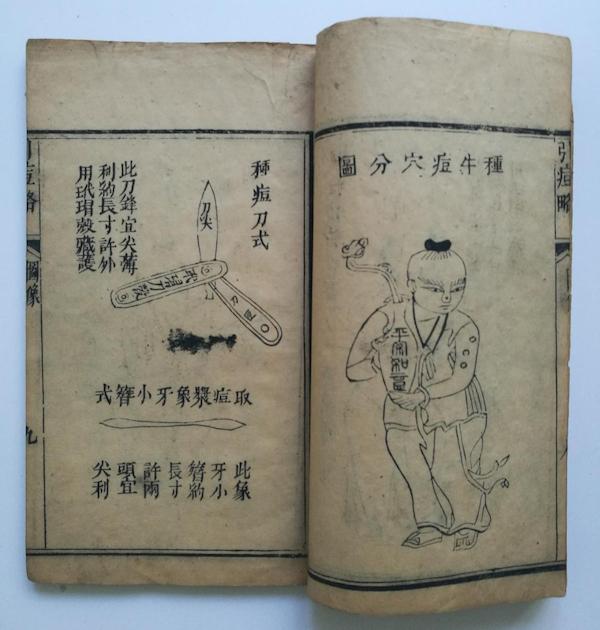 引痘略
種牛痘穴分圖
平安
種痘刀式
刀尖
此刀鋒宜尖薄
利約長寸許外
用玳瑁殼藏護
玳瑁刀殼
取痘漿象牙小簪式
此象
牙小
簪約
長寸
許兩
頭宜
尖利
引痘略
圖像
九